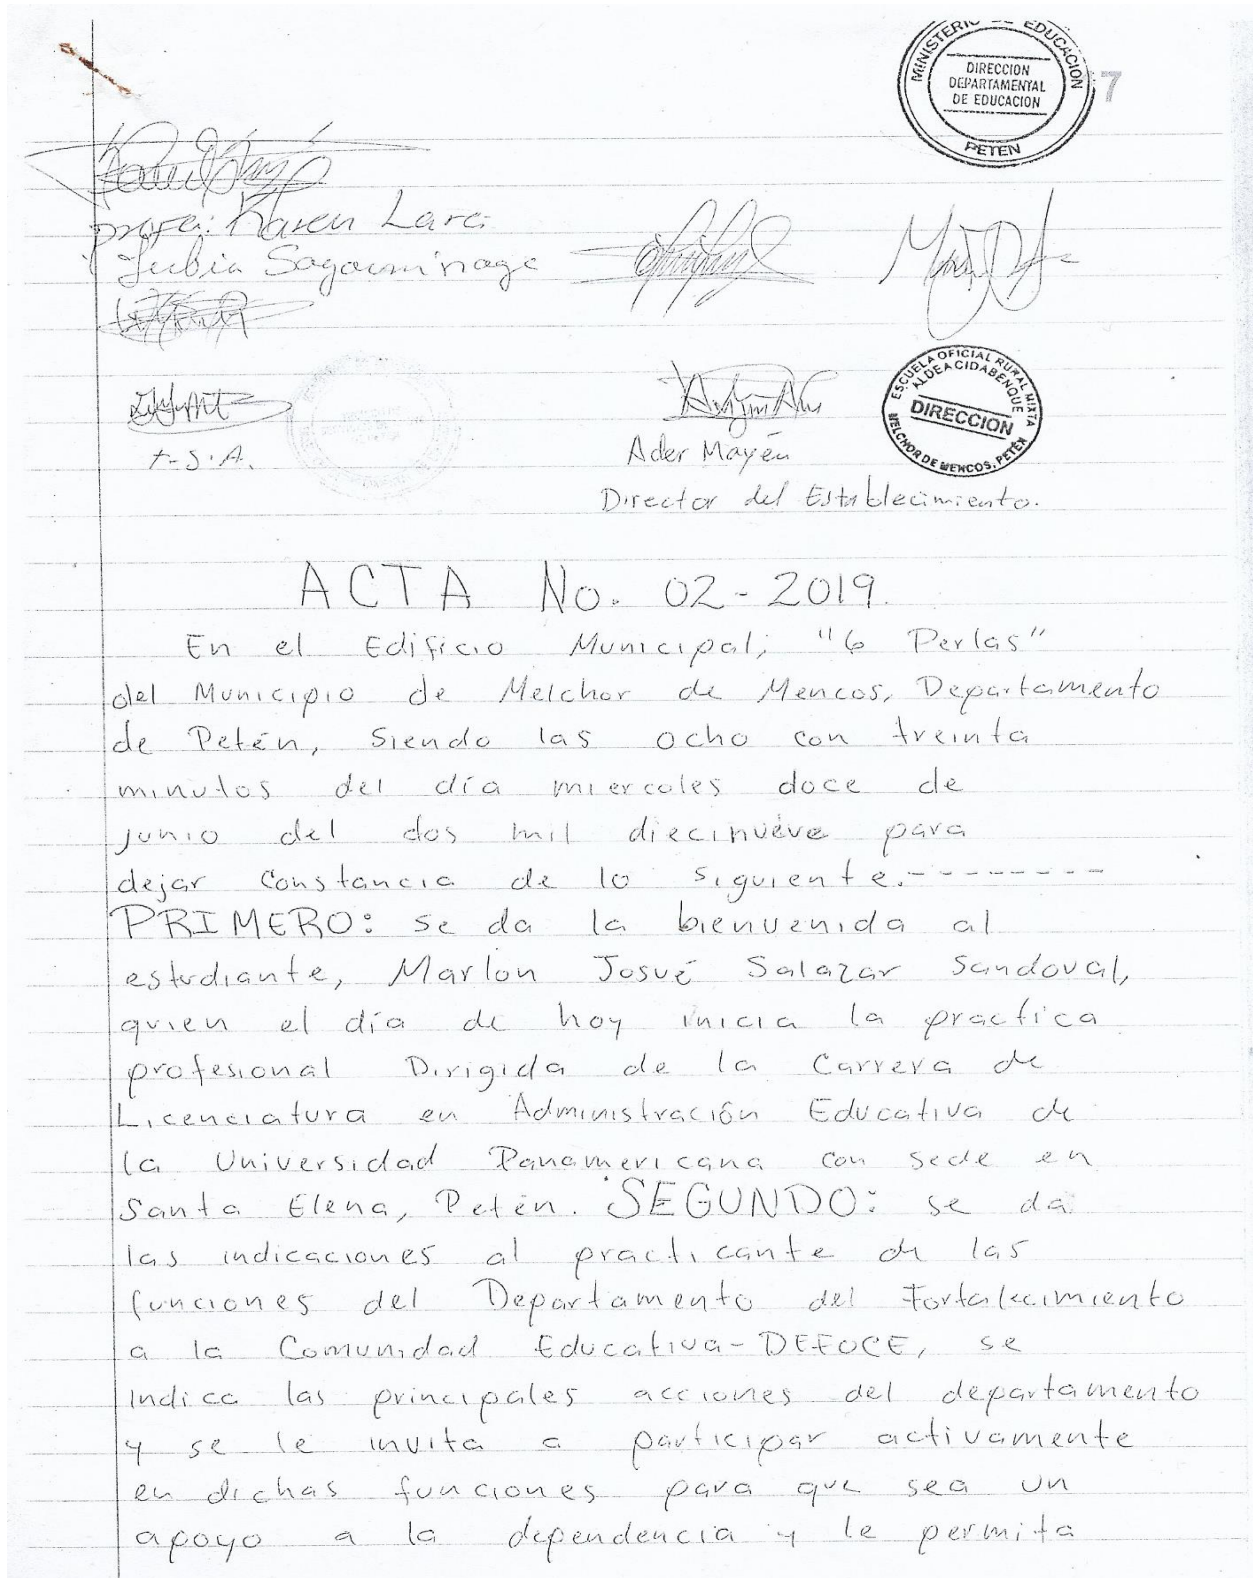 MINISTERIO DE EDUCACION
DIRECCION
DEPARTAMENTAL
DE EDUCACION
PETEN
7
profa: Karen Lara
ESCUELA OFICIAL RURAL MIXTA
ALDEA CIDABENQUE
DIRECCION
MELCHOR DE MENCOS, PETEN
Ader Mayén
Director del Establecimiento.
ACTA No. 02-2019.
En el Edificio Municipal; "6 Perlas"
del Municipio de Melchor de Mencos, Departamento
de Petén, Siendo las ocho con treinta
minutos del día miercoles doce de
junio del dos mil diecinueve para
dejar Constancia de lo siguiente.--------
PRIMERO: se da la bienvenida al
estudiante, Marlon Josué Salazar Sandoval,
quien el día de hoy inicia la practica
profesional Dirigida de la Carrera de
Licenciatura en Administración Educativa de
la Universidad Panamericana con sede en
Santa Elena, Petén. SEGUNDO: se da
las indicaciones al practicante de las
funciones del Departamento del Fortalecimiento
a la Comunidad Educativa-DEFOCE, se
Indica las principales acciones del departamento
y se le invita a participar activamente
en dichas funciones para que sea un
apoyo a la dependencia y le permita